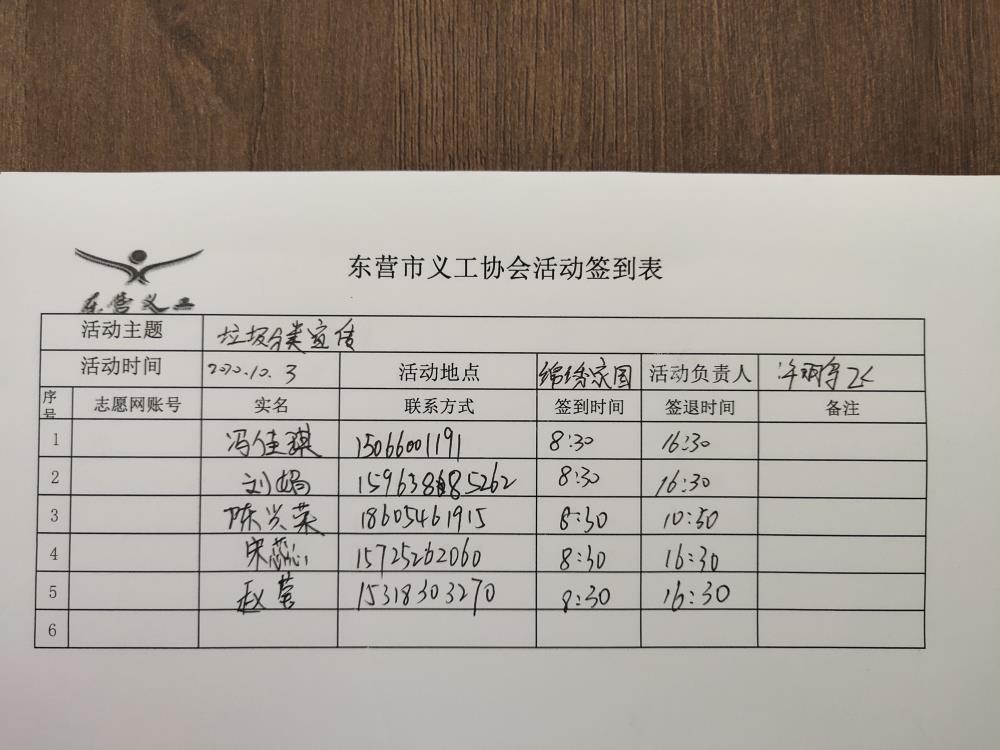 东营义工
东营市义工协会活动签到表
活动主题 垃圾分类宣传
活动时间 2020.10.3 活动地点 锦绣家园 活动负责人
序号 志愿网账号 实名 联系方式 签到时间 签退时间 备注
1 冯佳琪 15066001191 8:30 16:30
2 刘娟 8:30 16:30
3 陈兴荣 18605461915 8:30 10:30
4 宋蕊 15725262060 8:30 16:30
5 赵营 15318303270 8:30 16:30
6